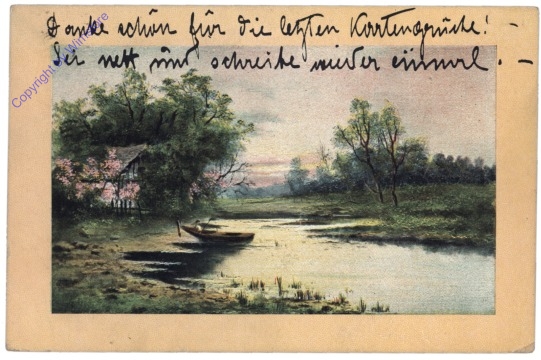 Danke schön für die letzten Kartengrüße! –
Sei nett und schreibe wieder einmal. –
Copyright by